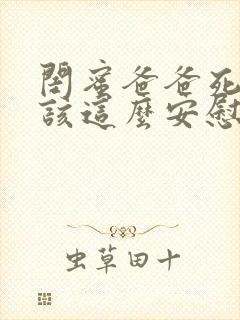 閨蜜爸爸死
該這麼安慰
虫草田十